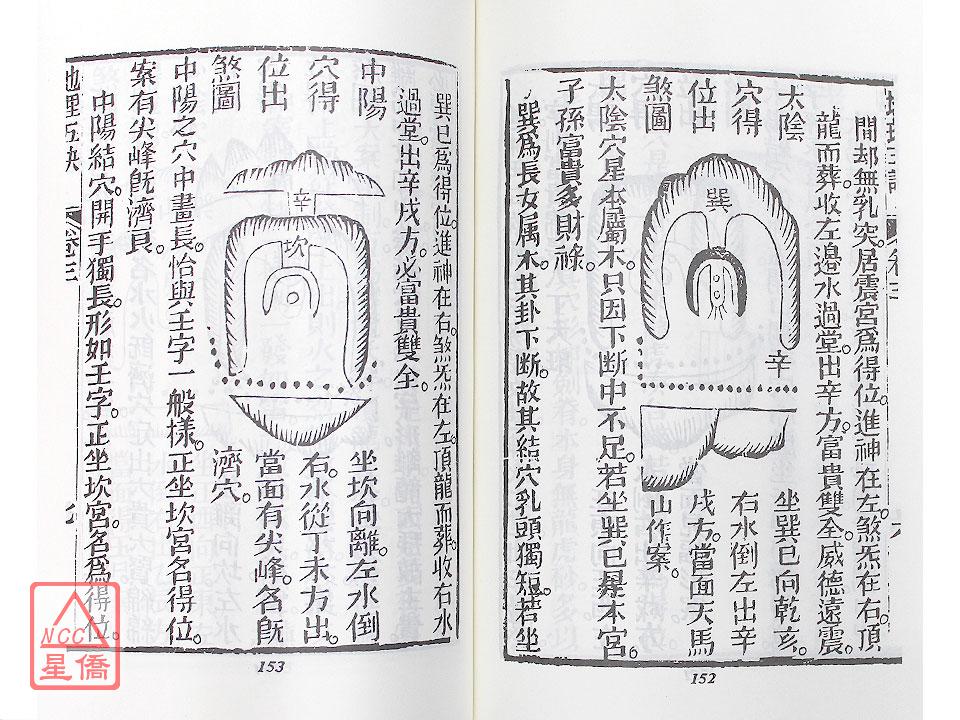 間却無乳突。居震宮爲得位。進神在左。煞炁在右。頂
龍而葬。收左邊水過堂。出辛方。富貴雙全。威德遠震。
太陰
穴得
位出
煞圖
巽
辛
坐巽巳向乾亥。
右水倒左出辛
戌方。當面天馬
山作案。
太陰穴星本屬木。只因下断中不足。若坐巽巳是本宮。
子孫富貴多財祿。
巽爲長女属木。其卦下断。故其結穴乳頭獨短。若坐
152
巽巳爲得位。進神在右。煞炁在左。頂龍而葬。收右水
過堂。出辛戌方。必富貴雙全。
中陽
穴得
位出
煞圖
辛
坎
坐坎向離。左水倒
右。水從丁未方出。
當面有尖峰。名旣
濟穴。
中陽之穴中畫長。恰與壬字一般樣。正坐坎宮名得位。
案有尖峰旣濟貝。
中陽結穴。開手獨長。形如壬字。正坐坎宮。名爲得位。
地理五訣
卷三
七
153
NCC
星僑